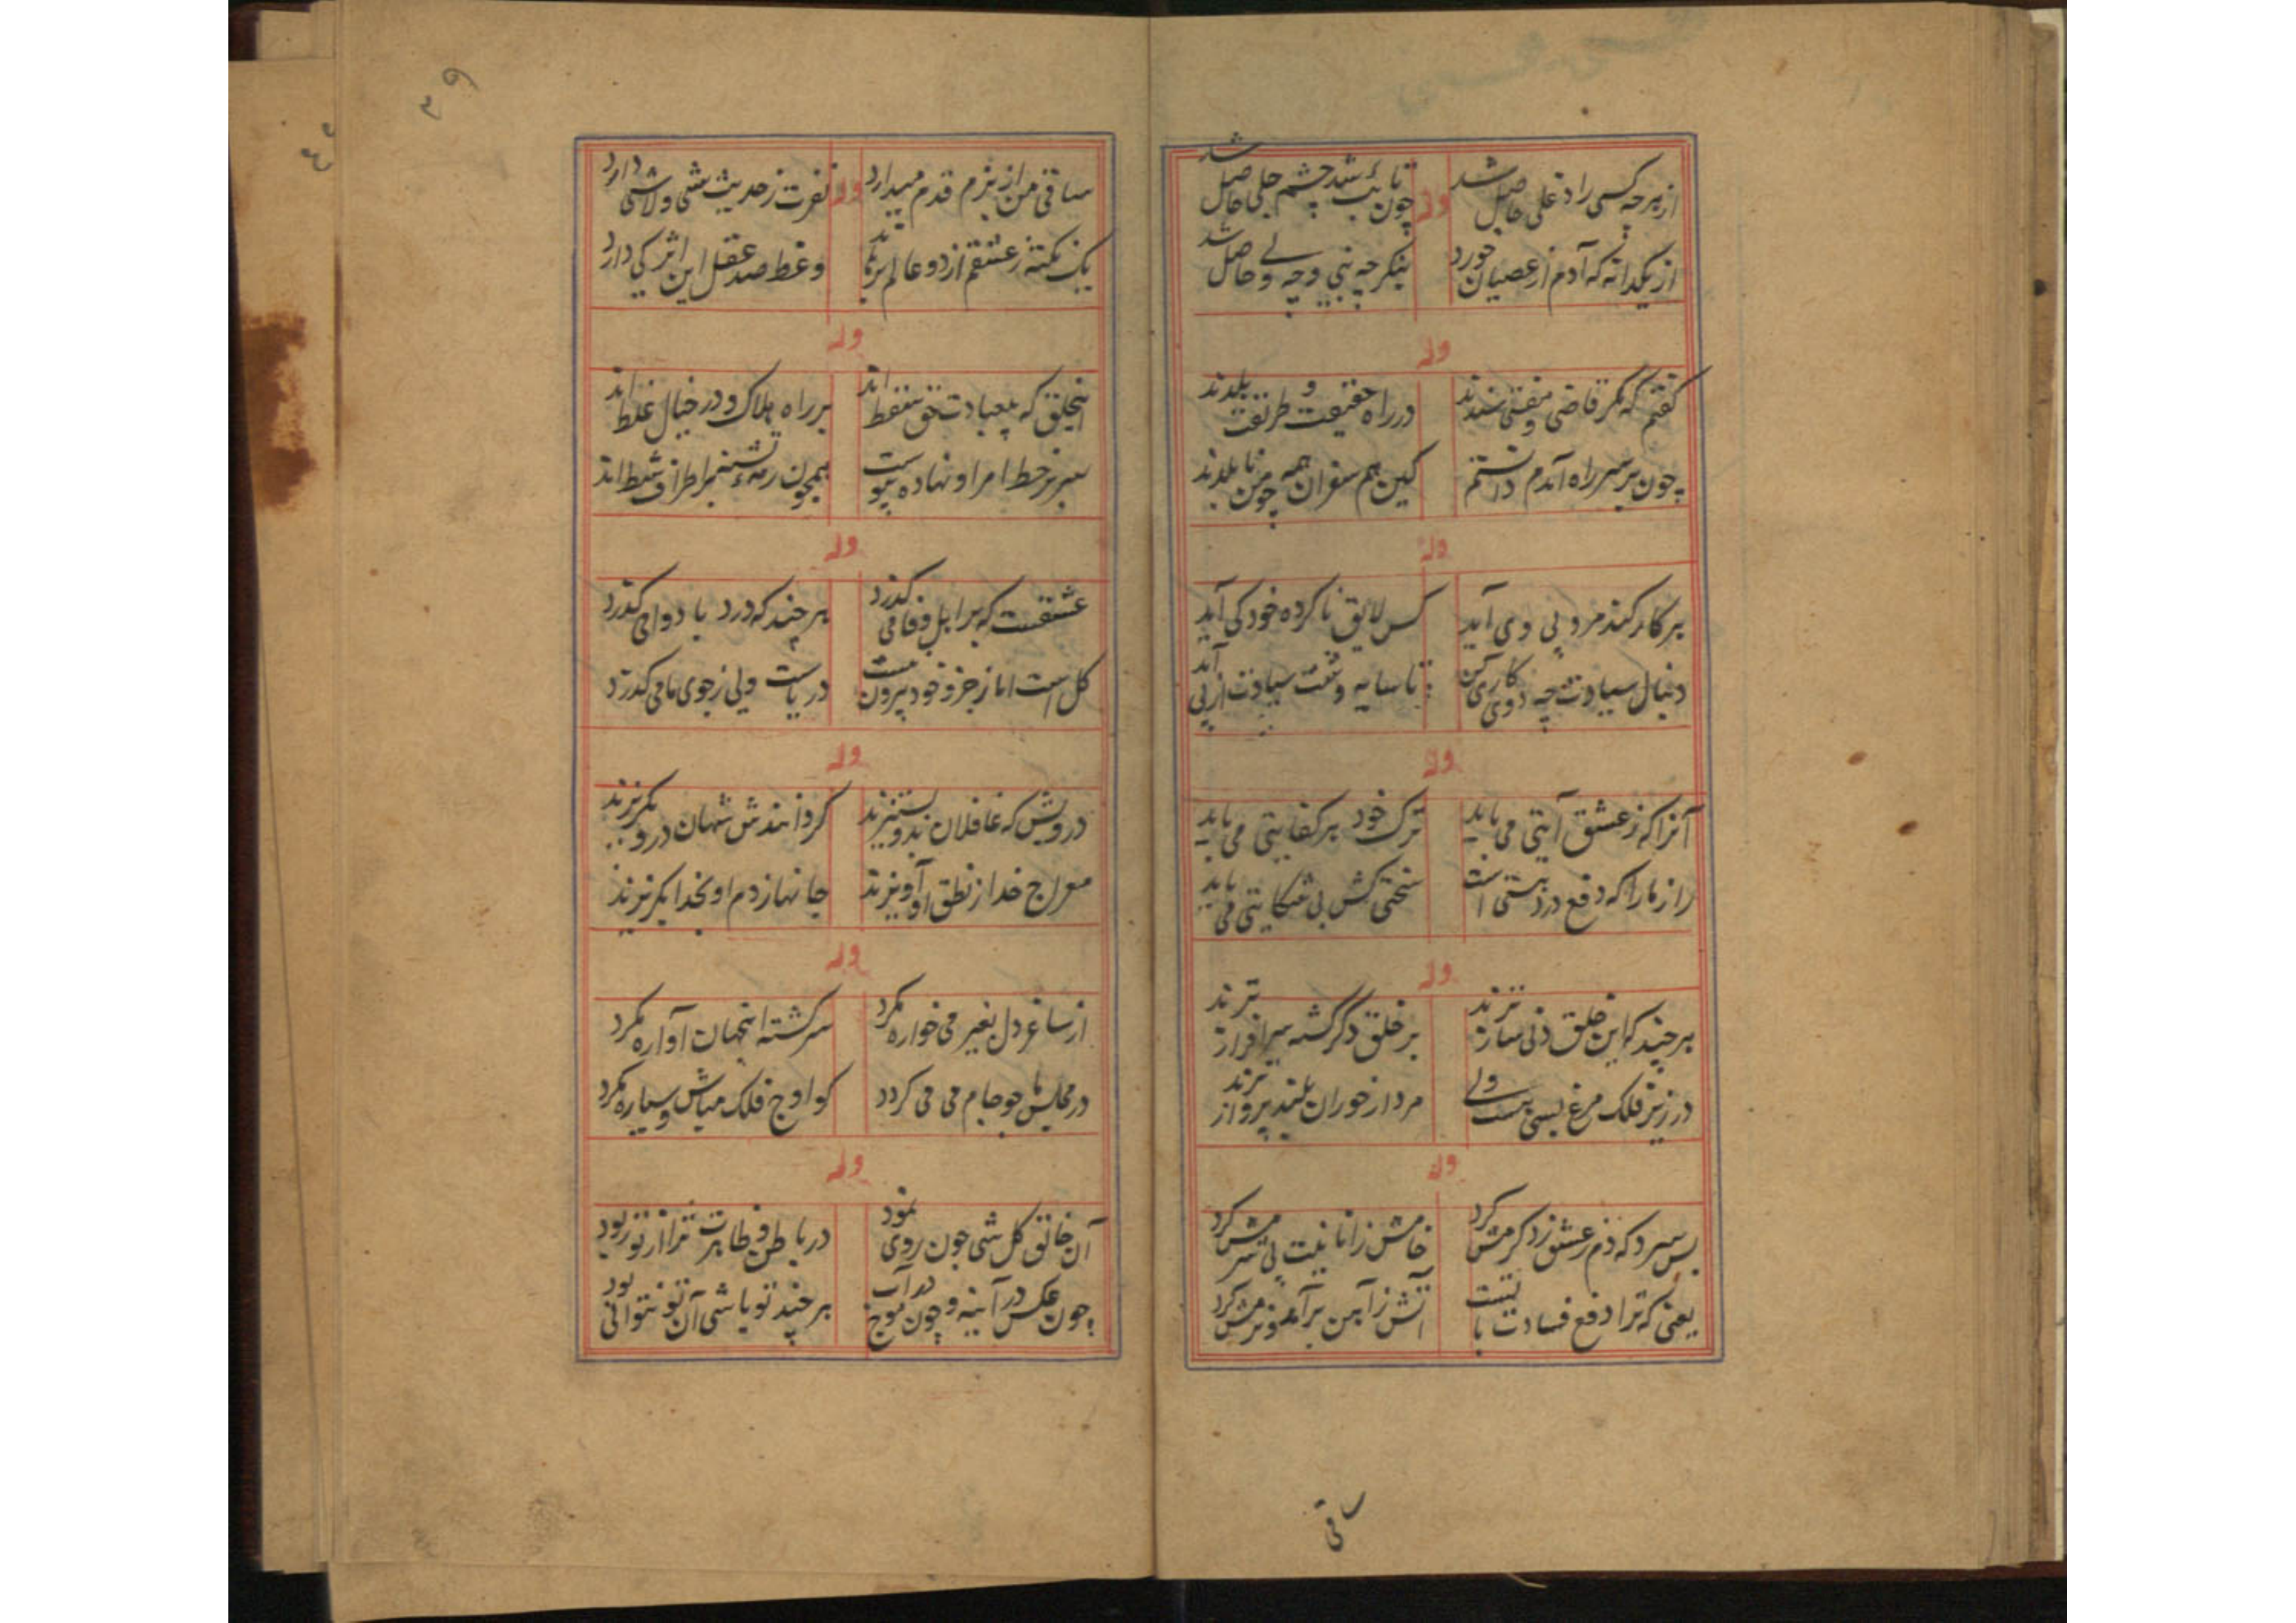 از هر چه کسی را دغلی حاصل شد
وله
چون تائب شد چشم جلی حاصل شد
از یکدانه که آدم از عصیان خورد
بنگر چه نبی و چه ولی حاصل شد
وله
گفتم که مگر قاضی و مفتی شده‌اند
در راه حقیقت و طریقت بلدند
چون بر سر راه آمدم دانستم
کین هم سفران همه چو من نابلدند
وله
هر کار کند مرد پی وی آید
کس لایق ناکرده خود کی آید
دنبال سیادت چه دوی کاری کن
تا سایه و شت سیادت از پی آید
وله
آنرا که ز عشق آیتی می باید
ترک خود هر کفایتی می باید
راز ما را که دفع درد هستی است
سختی کش بی شکایتی می باید
وله
هر چند که این خلق دنی ساز ترند
بر خلق دگر گشته سرافراز ترند
در زیر فلک مرغ بسی هست ولی
مردار خوران بلند پرواز ترند
وله
بس سرد که دم ز عشق زد گرمش کرد
خامش ز انانیت بی شرمش کرد
یعنی که ترا دفع فسادت با نیست
آتش ز آهن برآمد و نرمش کرد
ساقی
۳۹
ساقی من از بزم قدم می دارد
وله
نفرت ز حدیث شی و لاشی دارد
یک نکته ز عشقم از دو عالم برماند
وعظ صد عقل این اثر کی دارد
وله
اینخلق که بعبادت حق سقط اند
بر راه هلاک و در خیال غلط اند
سر بر خط امر او نهاده پیوست
همچون رمه تشنه بر اطراف شط اند
وله
عشقست که بر اهل وفا می گذرد
هر چند که درد با دوا می گذرد
کل است اما ز جزو خود بیرون است
دریاست ولی ز جوی ما می گذرد
وله
درویش که غافلان بدو بستیزند
گر دانندش شهان در و بگریزند
معراج خدا از نطق او آویزند
جانها ز دم او بخدا بگریزند
وله
از ساغر دل بغیر می خواره نکرد
سرگشته اینجهان آواره نکرد
در مجلس ما چو جام می می گردد
کو اوج فلک مباش و سیاره نکرد
وله
آن خالق کل شی چون روی نمود
در باطن و ظاهرت ترا از تو ربود
چون عکس در آینه و چون موج در آب
هر چند تو باشی آن تو نتوانی بود